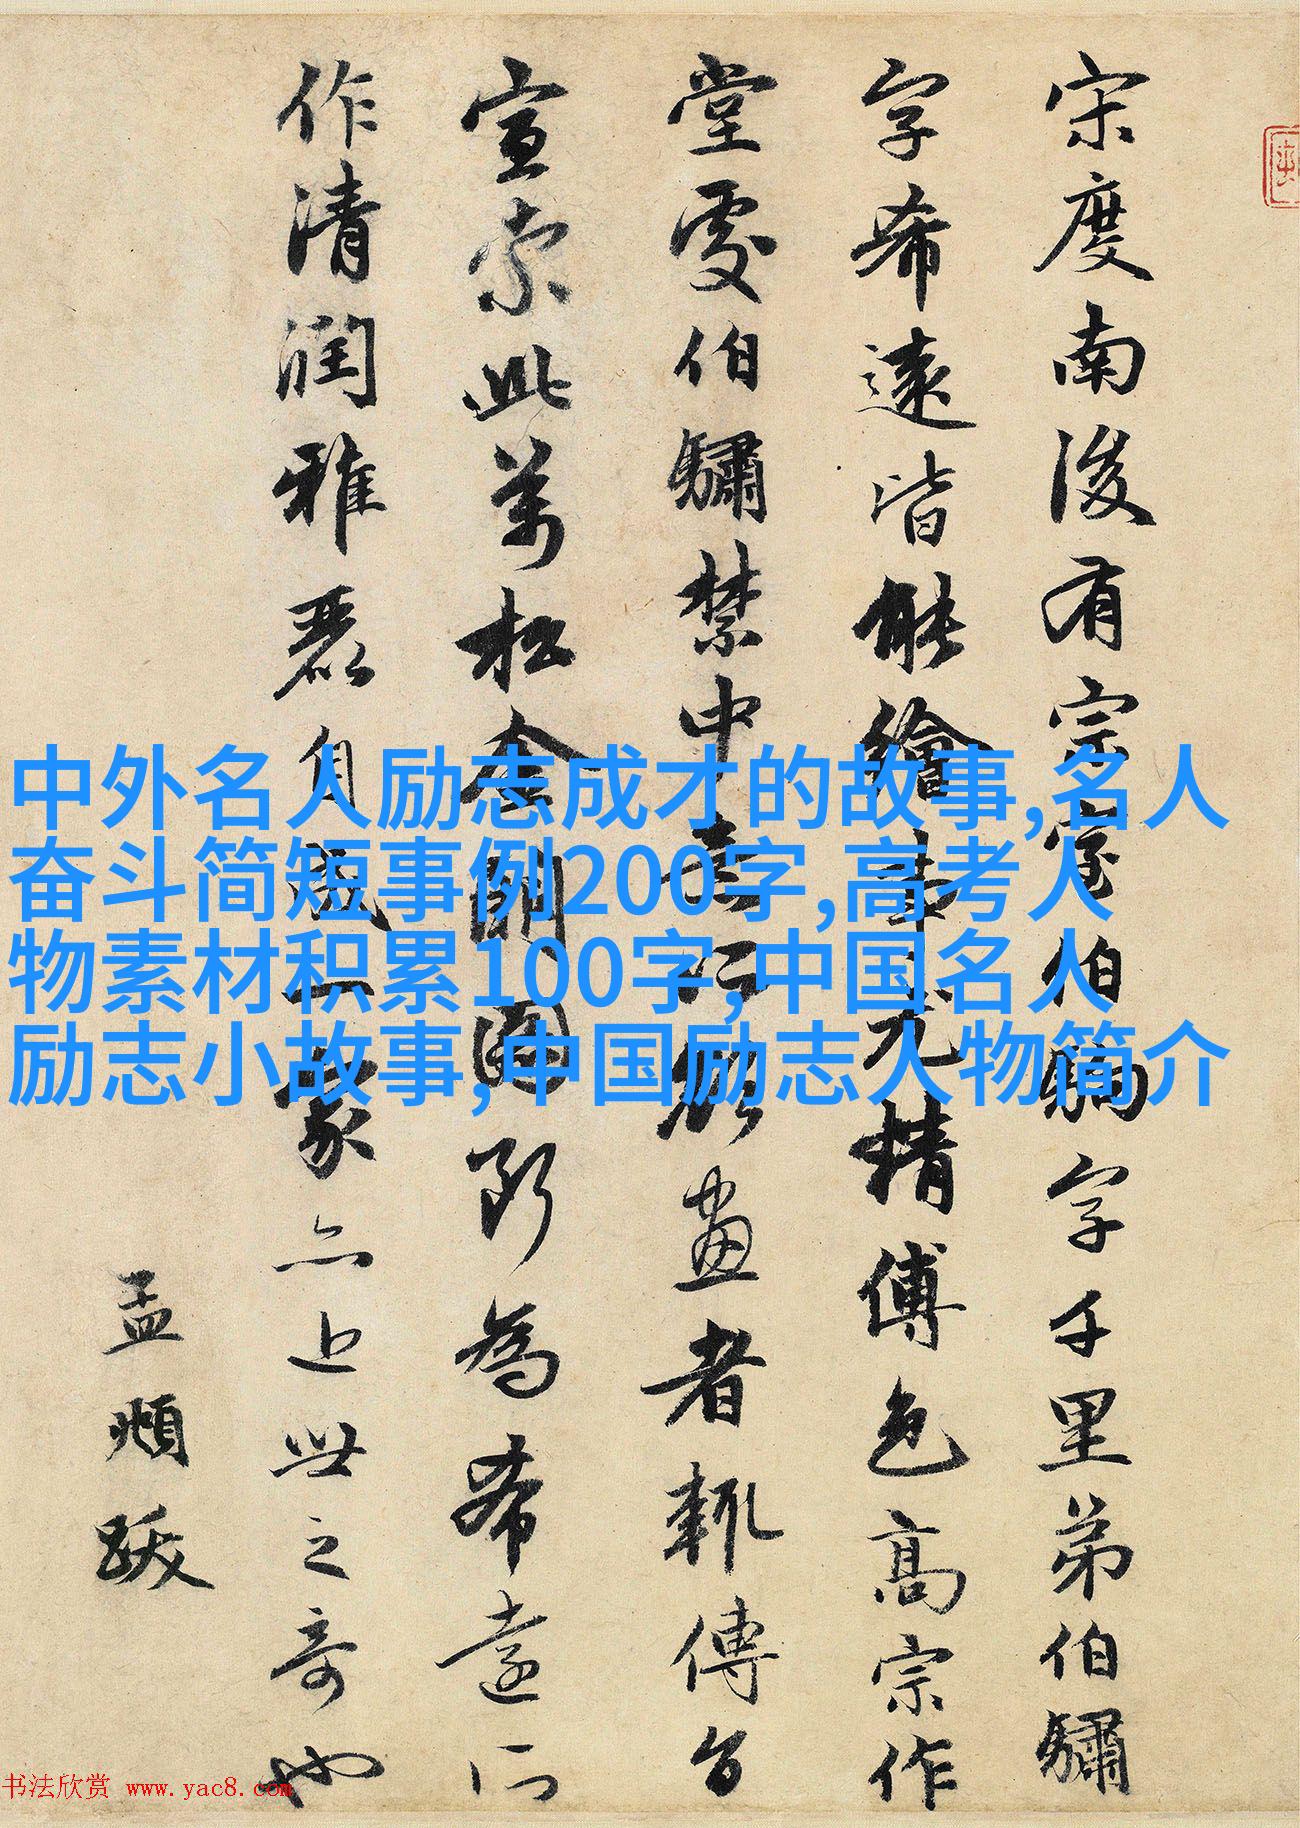 宋度南後有宗室伯駒字千里弟伯驌
字希遠皆能繪事尤精傅色高宗作
堂處伯驌禁中意所欲畫者輒傳旨
宣索此萬松金闕圖斷為希遠所
作清潤雅麗自成一家亦近世之奇也
孟頫跋
中外名人励志成才的故事,名人
奋斗简短事例200字,高考人
物素材积累100字,中国名人
励志小故事,中国励志人物简介
书法欣赏 www.yac8.com